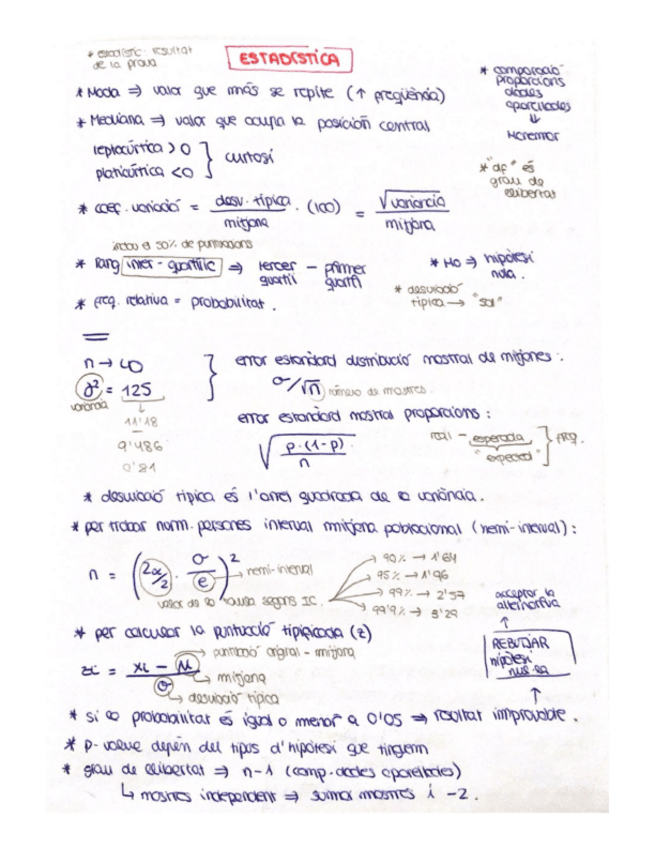 * estadístic: resultat
de la prova
ESTADÍSTICA
* comparació
proporcions
dades
aparellades
⇓
Mcnemar
* Moda ⇒ valor que más se repite (↑ freqüència)
* Mediana ⇒ valor que ocupa la posición central
leptocúrtica > 0
platicúrtica < 0
} curtosi
* "df" és
grau de
llibertat
* coef. variació = desv. típica / mitjana . (100) = √variància / mitjana
inclou el 50% de puntuacions
* Rang inter-quartílic ⇒ tercer quartil − primer quartil
* H0 ⇒ hipòtesi
nula.
* desviació
típica → "sd"
* freq. relativa = probabilitat.
n → 40
σ² = 125
variància
11'18
9'486
0'81
error estandard distribució mostral de mitjanes:
σ/√n número de mostres
error estandard mostral proporcions:
√ p.(1-p) / n
real - esperada } frq.
"expected"
* desviació típica és l'arrel quadrada de la variància.
* per trobar núm. persones interval mitjana poblacional (semi-interval):
n = (zα/2 . σ/e)² → semi-interval
valor de la taula segons IC.
90% → 1'64
95% → 1'96
99% → 2'57
99'9% → 3'29
acceptar la
alternativa
↑
REBUTJAR
hipòtesi
nul·la
↑
* per calcular la puntuació tipificada (z)
zi = xi − μ / σ
puntuació original - mitjana
mitjana
desviació típica
* si la probabilitat és igual o menor a 0'05 ⇒ resultat improbable.
* p-value depèn del tipus d'hipòtesi que tinguem
* grau de llibertat ⇒ n-1 (comp. dades aparellades)
↳ mostres independent ⇒ sumar mostres i -2.